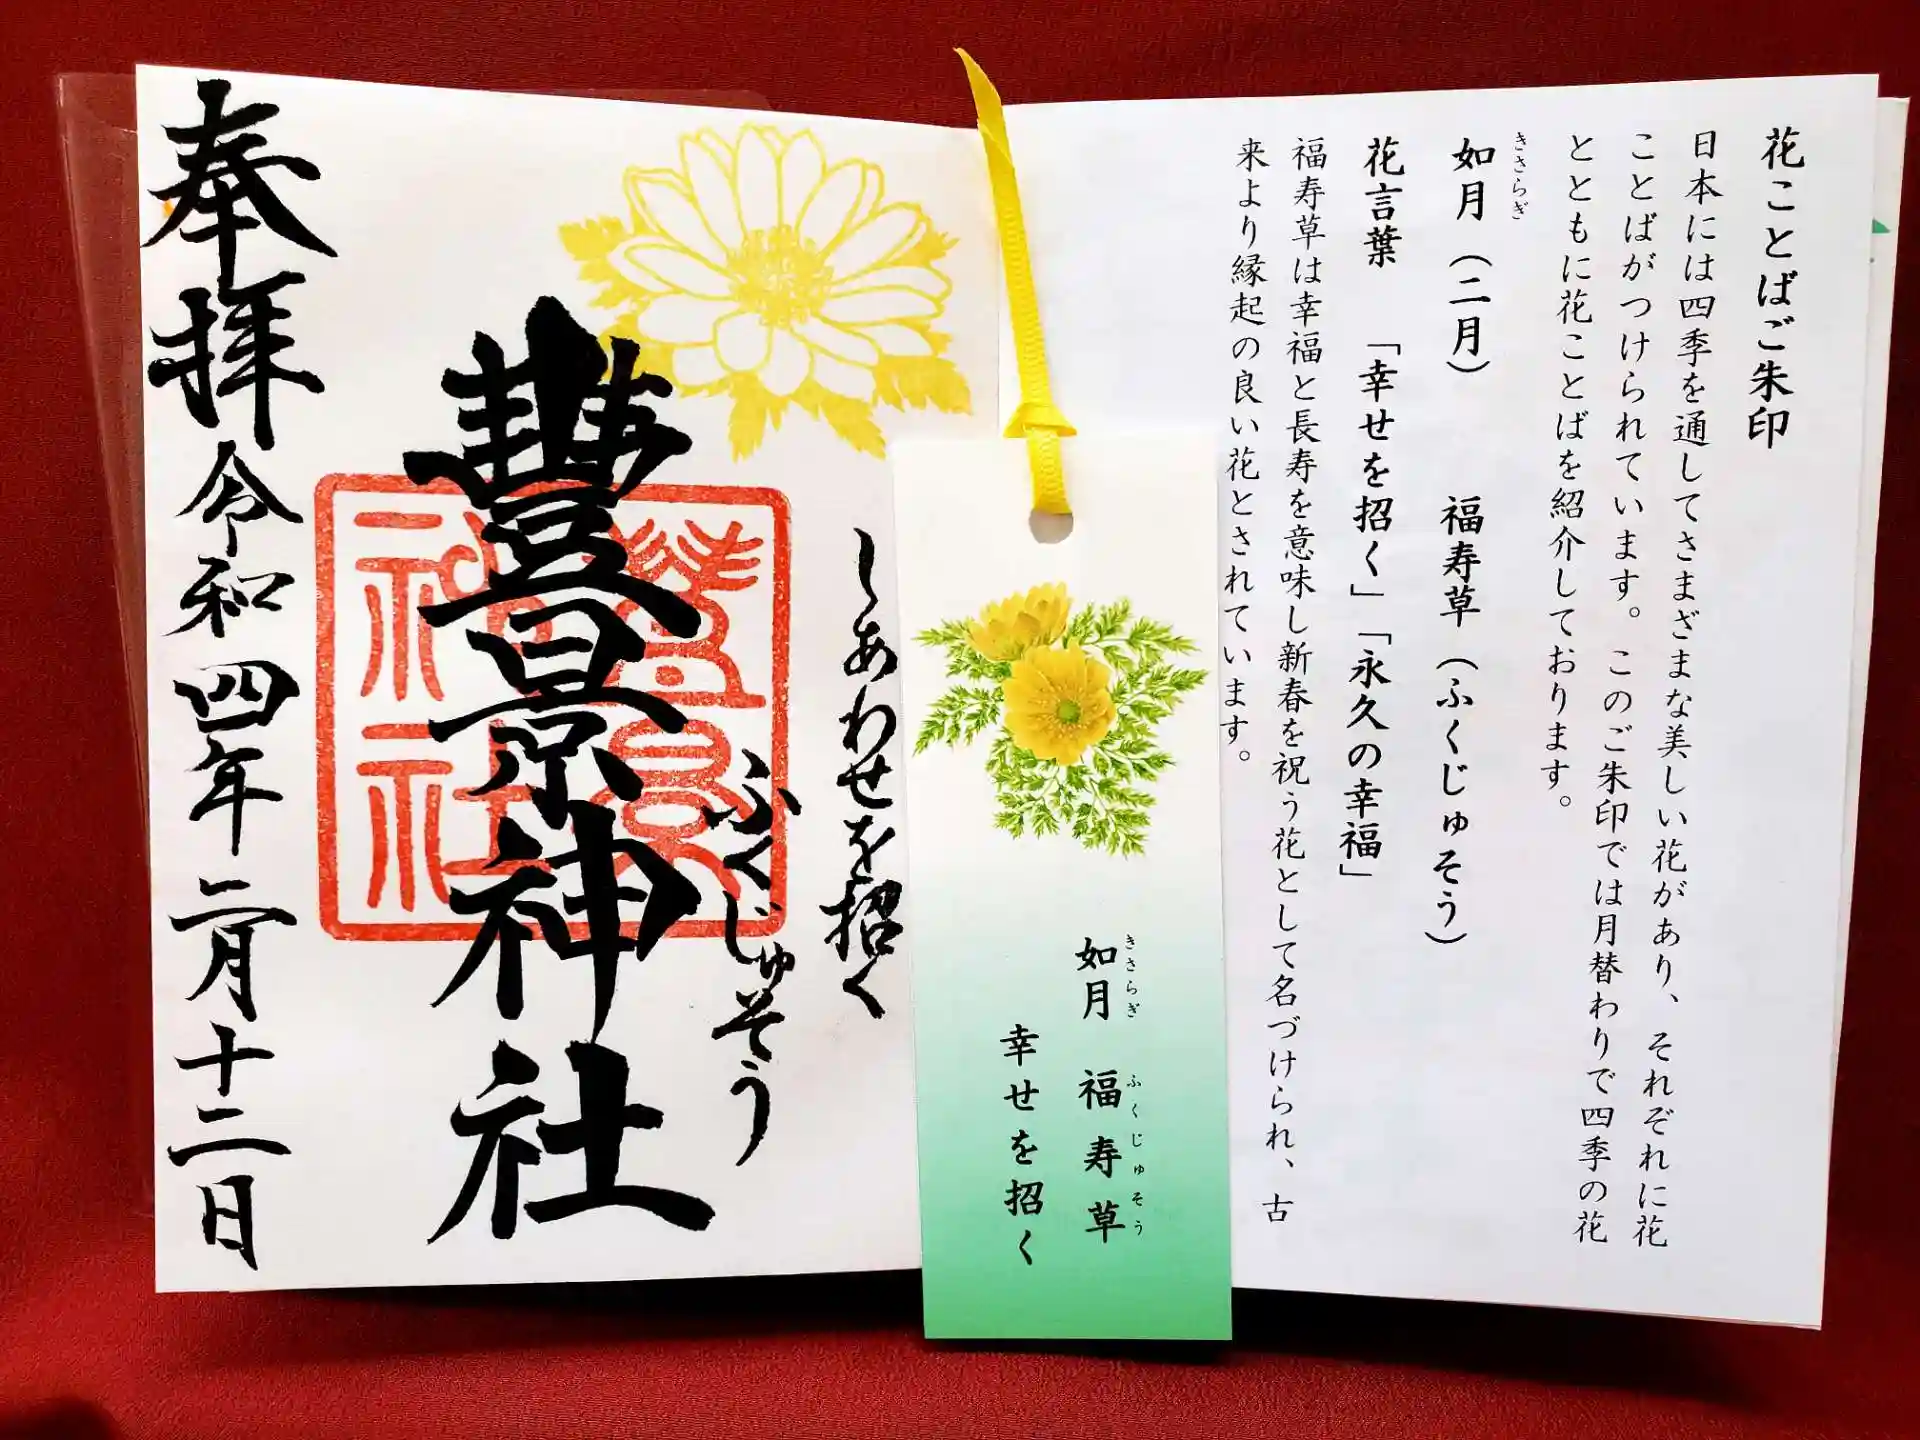 花ことばご朱印
日本には四季を通してさまざまな美しい花があり、それぞれに花
ことばがつけられています。このご朱印では月替わりで四季の花
とともに花ことばを紹介しております。
きさらぎ
如月（二月）　福寿草（ふくじゅそう）
花言葉　「幸せを招く」「永久の幸福」
福寿草は幸福と長寿を意味し新春を祝う花として名づけられ、古
来より縁起の良い花とされています。
きさらぎ　ふくじゅそう
如月　福寿草
幸せを招く
しあわせを招く
ふくじゅそう
豊景神社
奉拝令和四年二月十二日
豊景
神社